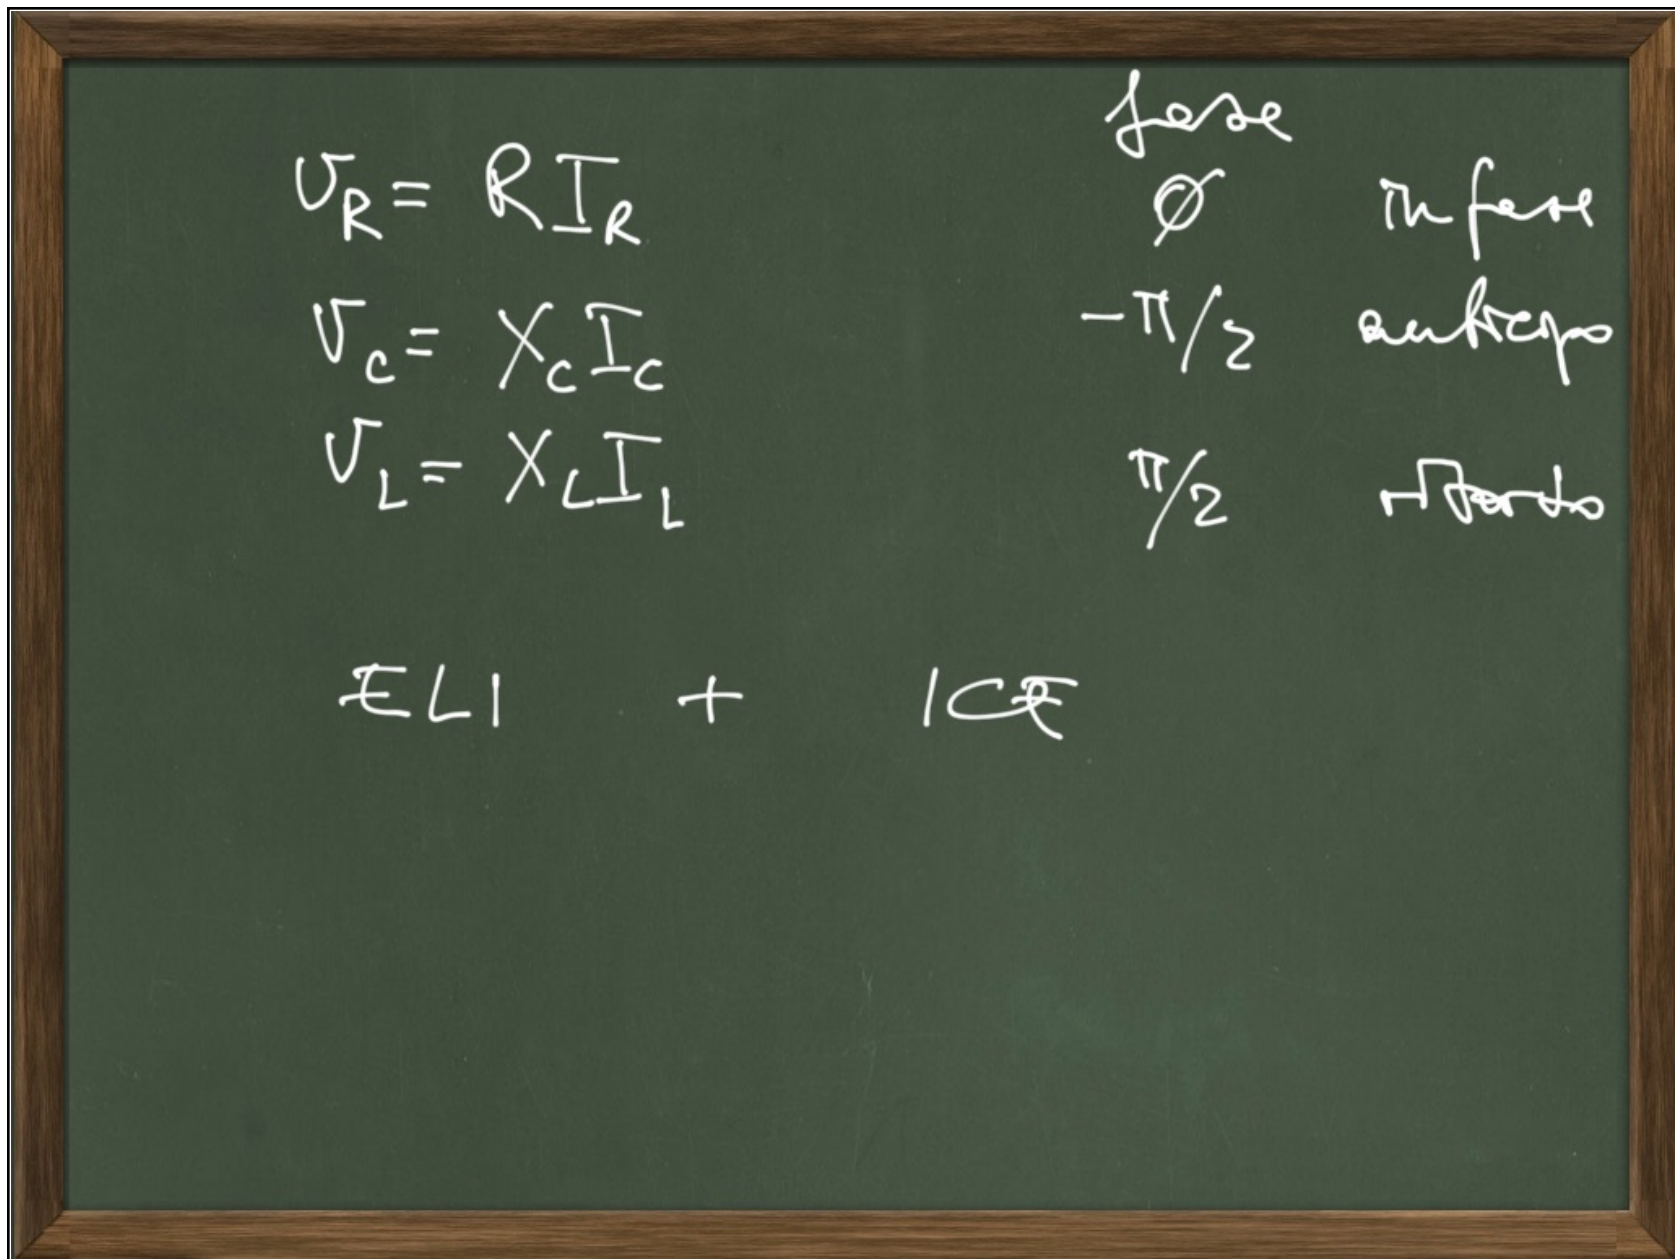 fase
V_R = R I_R ∅ in fase
V_C = X_C I_C -π/2 anticipo
V_L = X_L I_L π/2 ritardo
ELI + ICE